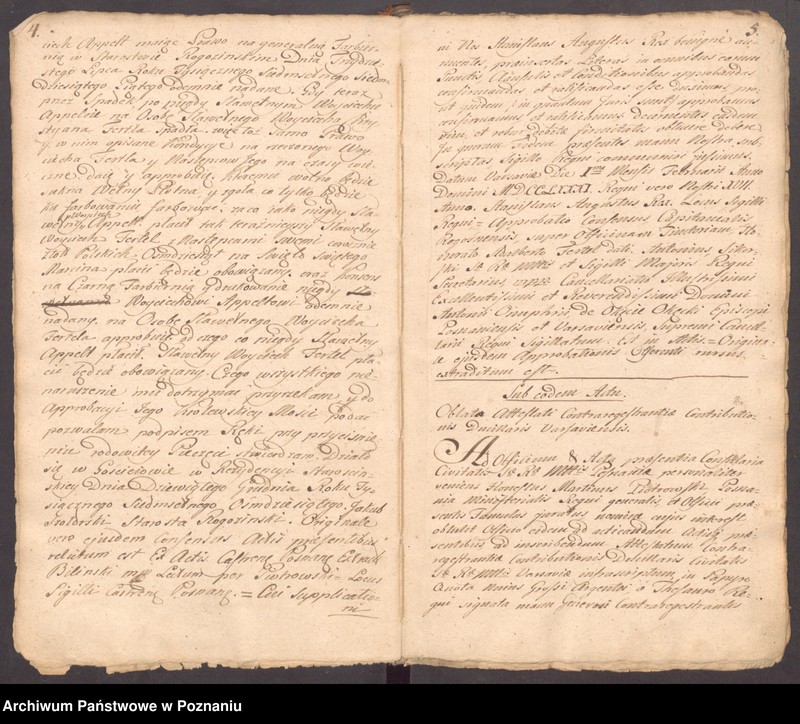 4.
ciech Appelt maiąc Prawo na generalną Farbier-
nią w Starostwie Rogozinskim Dnia Trzydzies-
stego Lipca Roku Tysiącznego Siedmsetnego Siedm
Dziesiątego Piątego Jemuie nadane. Gdy teraz
przez Spadek po niegdy Sławetnym Woyciechu
Appelcie na Osobę Sławetnego Woyciecha Kry-
styana Fertla spadła. więc toż samo Prawo
y w nim opisane Kondycye na rzeczonego Woy-
ciecha Fertla y Następców Jego na czasy wie-
czne daię y approbuię. któremu wolno będzie
sukna Wełny Płotna y zgoła co tylko będzie
ka farbowania farbować, za co iako niegdy Sła-
wetny Woyciech Appelt płacił tak teraznieyszy Sławetny
Woyciech Fertel z Następcami Swemi corocznie
Złotych Polskich Osmdziesiąt na Swięto Swiętego
Marcina płacić będzie obowiązany. oraz konsens
na Czarną Farbiernią y drukowanie niegdy
Woyciechowi Appeltowi Jdemnie
nadany. na Osobę Sławetnego Woyciecha
Fertla approbuię, od czego co niegdy Sławetny
Appelt płacił, Sławetny Woyciech Fertel pła-
cić będzie obowiązany. Czego wszystkiego nie-
naruszenie mu dotrzymać przyrzekam y do
Approbacyi Jego Krolewskiey Mości podać
pozwalam podpisem Ręki przy przycisnie-
nie rodowitey Pieczęci stwierdzam. Działo
się w Gościeiewie w Rezydencyi Starościn-
skiey Dnia Dziewiątego Grudnia Roku Ty-
siącznego Siedmsetnego Osmdziesiątego. Jakub
Starosta Rogozinski. Originale
vero ejusdem Consensus Actis præsentibus
relatum est Ex Actis Castren: Posnan: Extradi:
Bilinski mp Lectum per Piotrowski = Locus
Sigilli Castren: Posnan: = Cui Supplicatio-
ni
5.
ni Nos Stanislaus Augustus Rex benigne an-
nuentes, præinsertas Literas in omnibus earum
Punctis Clausulis et Conditionibus approbandas,
confirmandas et ratificandas esse duximus, pro-
ut quidem in quantum Juris sunt, approbamus
confirmamus et ratihabemus Decernentes easdem
vim, et robur debitæ firmitatis obtinere debere
In quorum Fidem Præsentes manu Nostra sub-
scriptas Sigillo Regni communiri jussimus.
Datum Varsaviæ Die I.ma Mensis Februarii Anno
Domini MDCCLXXXI. Regni vero Nostri XVII.
Anno. Stanislaus Augustus Rex. Locus Sigilli
Regni = Approbatio Consensus Capitanealis
Rogosnensis, super Officinam Tinctoriam Ho-
norato Adalberto Fertel dati. Antonius Sikor-
ski S: R: Mttis et Sigilli Majoris Regni
Secretarius, mppr Cancellariatu Illustrissimi
Excellentissimi et Reverendissimi Domini
Antonii Onuphrii de Okęcie Okęcki Episcopi
Posnaniensis et Varsaviensis, Supremi Cancel-
larii Regni Sigillatum. est in Actis = Origina-
le ejusdem Approbationis Offerenti rursus.
extraditum est.
Sub eodem Actu.
Oblata Attestati Contraregestrantis Contributio-
nis Varsaviensis.
Ad Officium & Acta præsentia Consularia
Civitatis S: R: Mttis Posnaniæ personaliter
veniens Honestus Martinus Piotrowski Posna-
niæ Ministerialis Regni generalis, et Officii præ-
sentis Famulus juratus nomine cujus interest
obtulit Officio eidem ad acticandum Actisq præ-
sentibus ad inscribendum Attestatum Contra-
regestrantis Contributionis Civitatis
S: R: Mttis Varsaviæ infrascriptum, in Papyro
Quota Unius Grossi Argentei e Thesauro Re-
gni signata manu Generosi Contraregestrantis
Archiwum Państwowe w Poznaniu